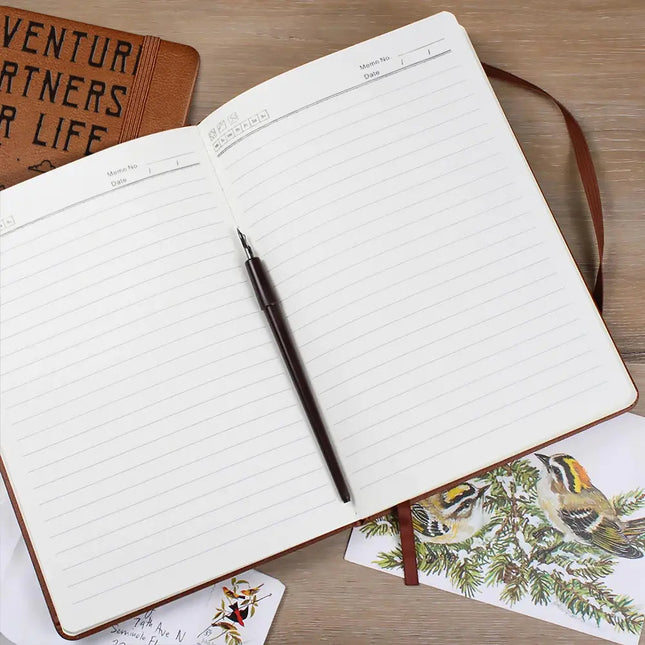 VENTUR
ARTNERS
R LIFE
Memo No
Date / /
Memo No
Date / /
79th Ave N
Seminole Fl